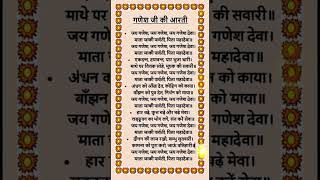 गणेश जी की आरती
जय गणेश, जय गणेश, जय गणेश देवा।
माता जाकी पार्वती, पिता महादेवा॥
एकदन्त, दयावन्त, चार भुजा धारी।
माथे पर तिलक सोहे, मूसे की सवारी॥
जय गणेश, जय गणेश, जय गणेश देवा।
माता जाकी पार्वती, पिता महादेवा॥
अंधन को आँख देत, कोढ़िन को काया।
बाँझन को पुत्र देत, निर्धन को माया॥
जय गणेश, जय गणेश, जय गणेश देवा।
माता जाकी पार्वती, पिता महादेवा॥
हार चढ़े, फूल चढ़े और चढ़े मेवा।
लड्डुअन का भोग लगे, संत करें सेवा॥
जय गणेश, जय गणेश, जय गणेश देवा।
माता जाकी पार्वती, पिता महादेवा॥
दीनन की लाज रखो, शम्भु सुतकारी।
कामना को पूरा करो, जाऊं बलिहारी॥
जय गणेश, जय गणेश, जय गणेश देवा।
माता जाकी पार्वती, पिता महादेवा॥